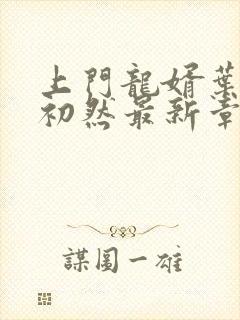 上門龍婿葉
初然最新章
謀圖一雄